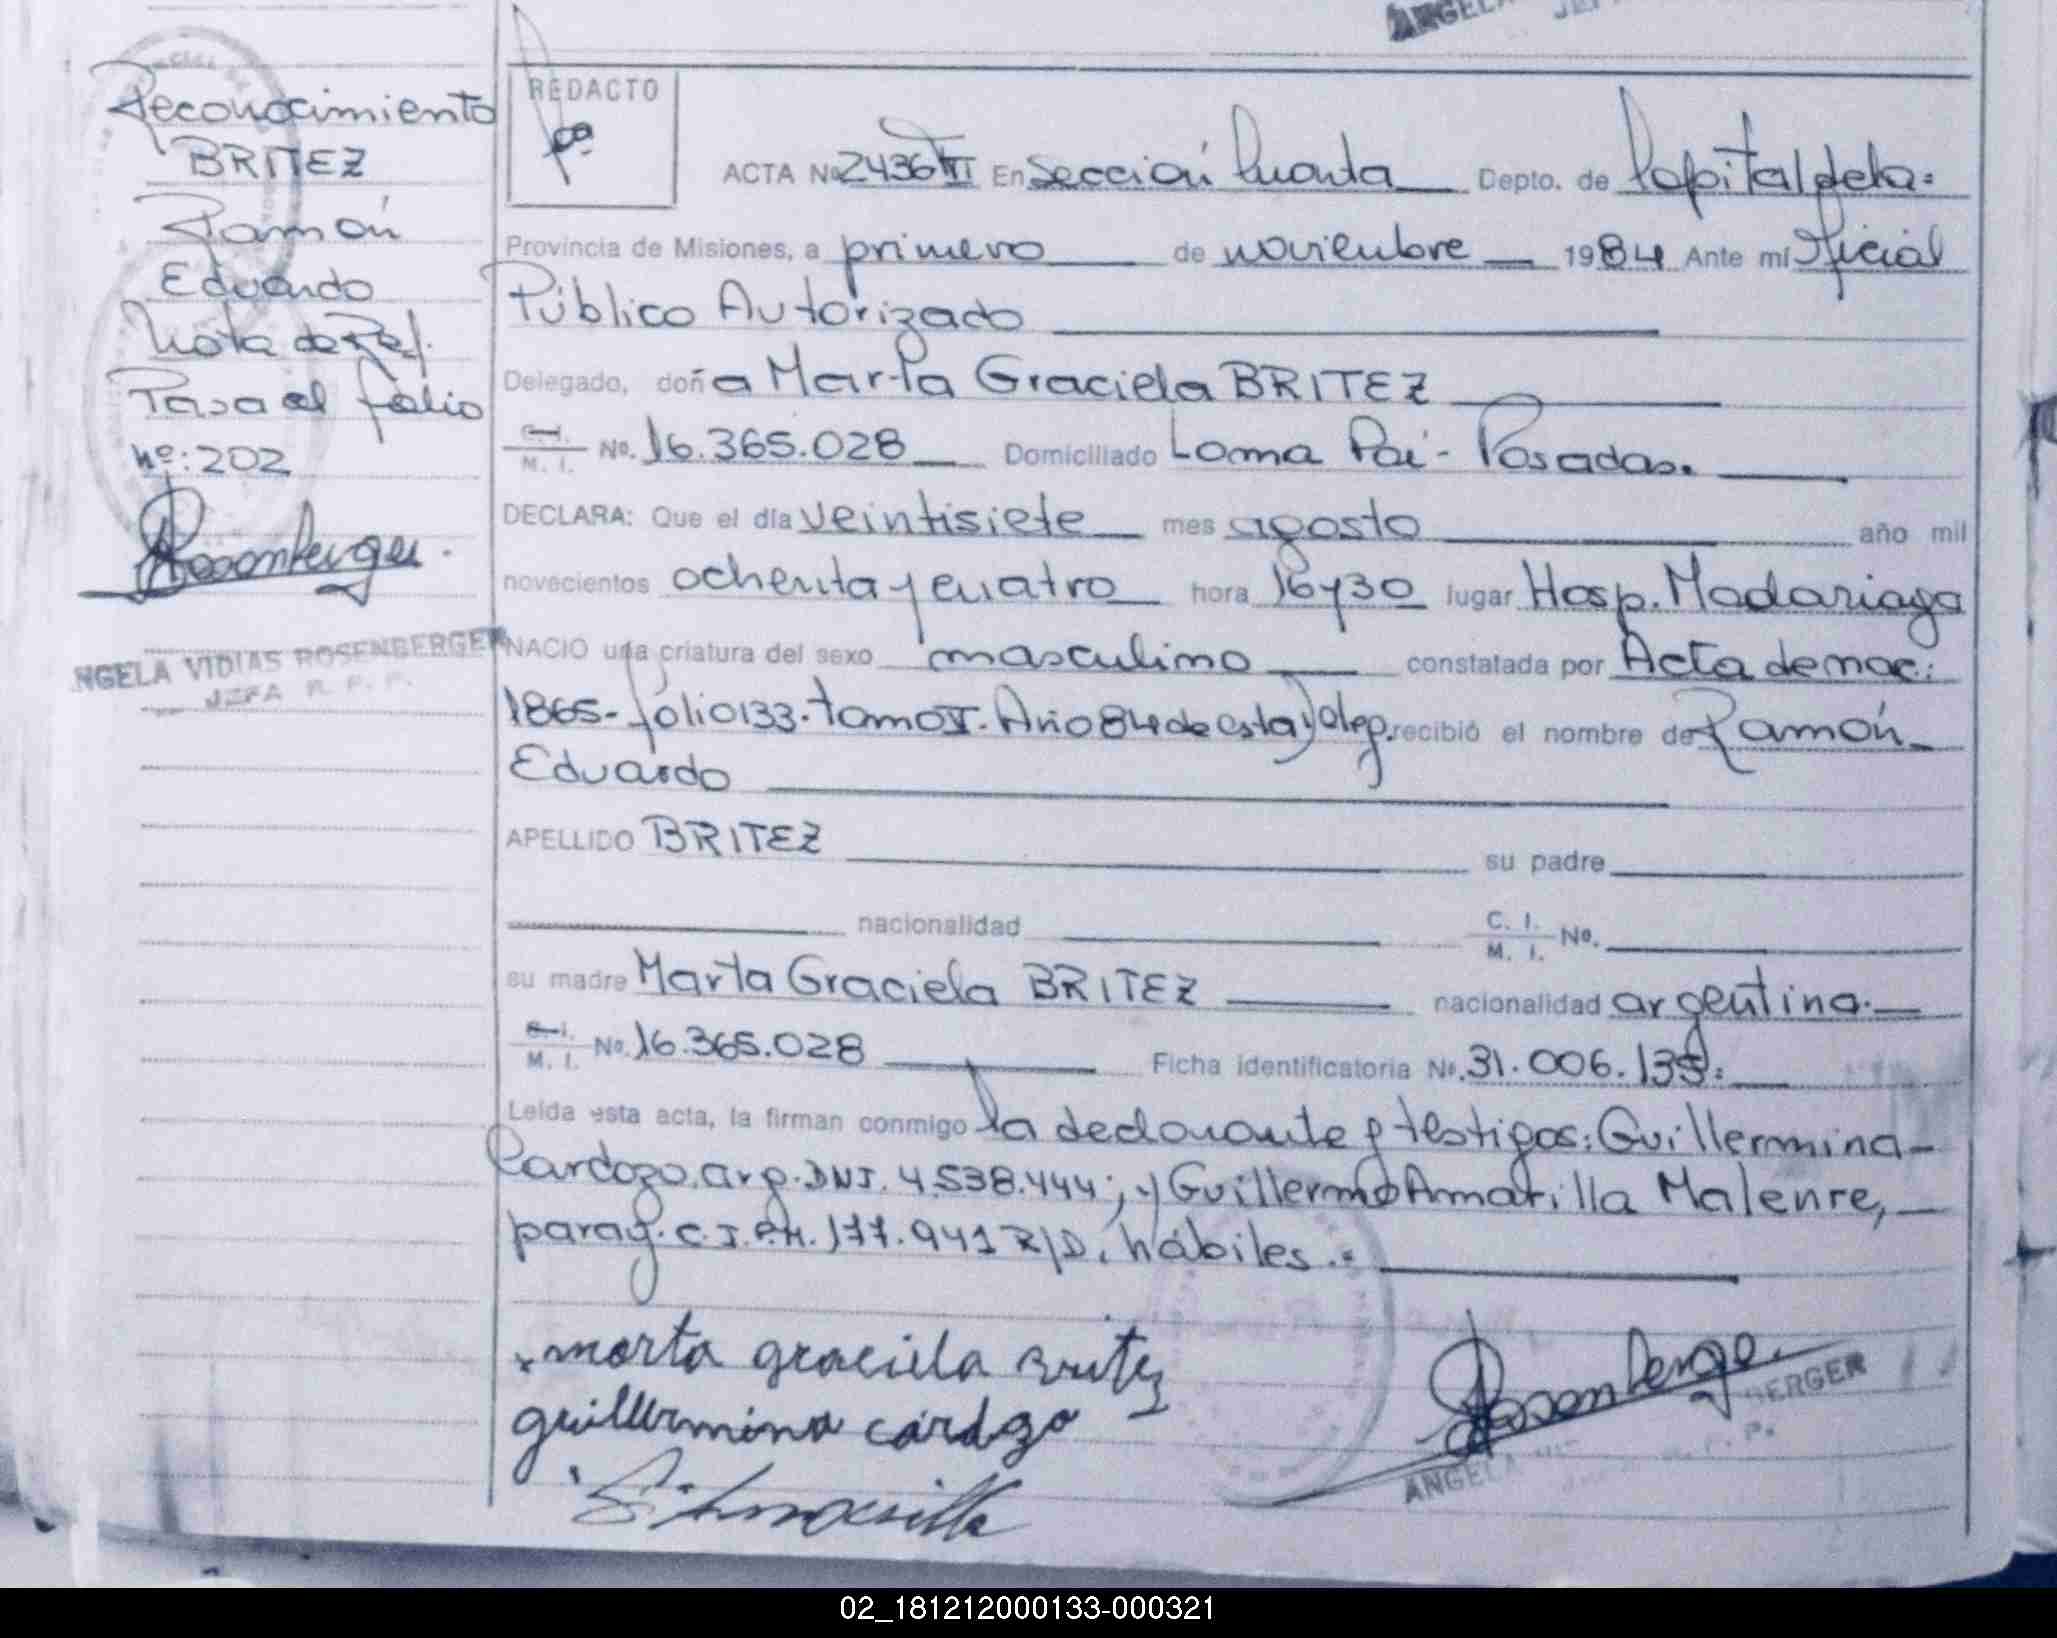 ANGELA
Reconocimiento
BRITEZ
Ramón
Eduardo
Nota de Ref.
Pasa al folio
nº: 202
Rosenberger.
NGELA VIDIAS ROSENBERGER
JEFA R. P. P.
REDACTO
ACTA No 2436 En Sección Cuarta Depto. de Capital de la
Provincia de Misiones, a primero de noviembre 1984 Ante mí Oficial
Público Autorizado
Delegado, doña Marta Graciela BRITEZ
C. I. / M. I. No. 16.365.028 Domiciliado Loma Pai - Posadas.
DECLARA: Que el día veintisiete mes agosto año mil
novecientos ochenta y cuatro hora 16 y 30 lugar Hosp. Madariaga
NACIO una criatura del sexo masculino constatada por Acta de nac:
1865 - folio 133 - tomo V - Año 84 de esta recibió el nombre de Ramón
Eduardo
APELLIDO BRITEZ su padre
nacionalidad C. I. / M. I. No.
su madre Marta Graciela BRITEZ nacionalidad argentina.
C. I. / M. I. No. 16.365.028 Ficha identificatoria No. 31.006.135.
Leída esta acta, la firman conmigo la declarante y testigos: Guillermina
Cardozo, arg. DNI. 4.538.444; y Guillermo Amarilla Malenre,
parag. C.I. 177.941 R/D. hábiles.
marta graciela britez
guillermina cardozo
G. Amarilla
Rosenberger
ANGELA BERGER
02_181212000133-000321